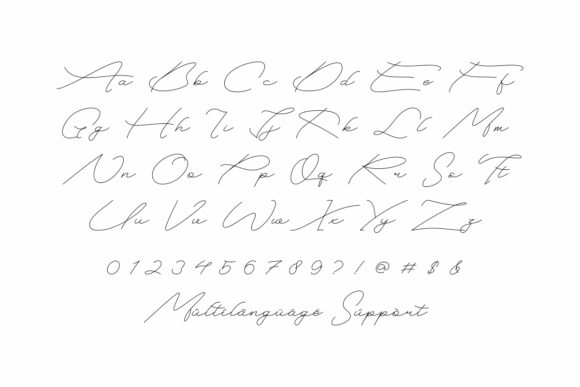 Aa Bb Cc Dd Ee Ff
Gg Hh Ii Jj Kk Ll Mm
Nn Oo Pp Qq Rr Ss Tt
Uu Vv Ww Xx Yy Zz
0 1 2 3 4 5 6 7 8 9 ? ! @ # $ &
Múltilángüáge Súppört